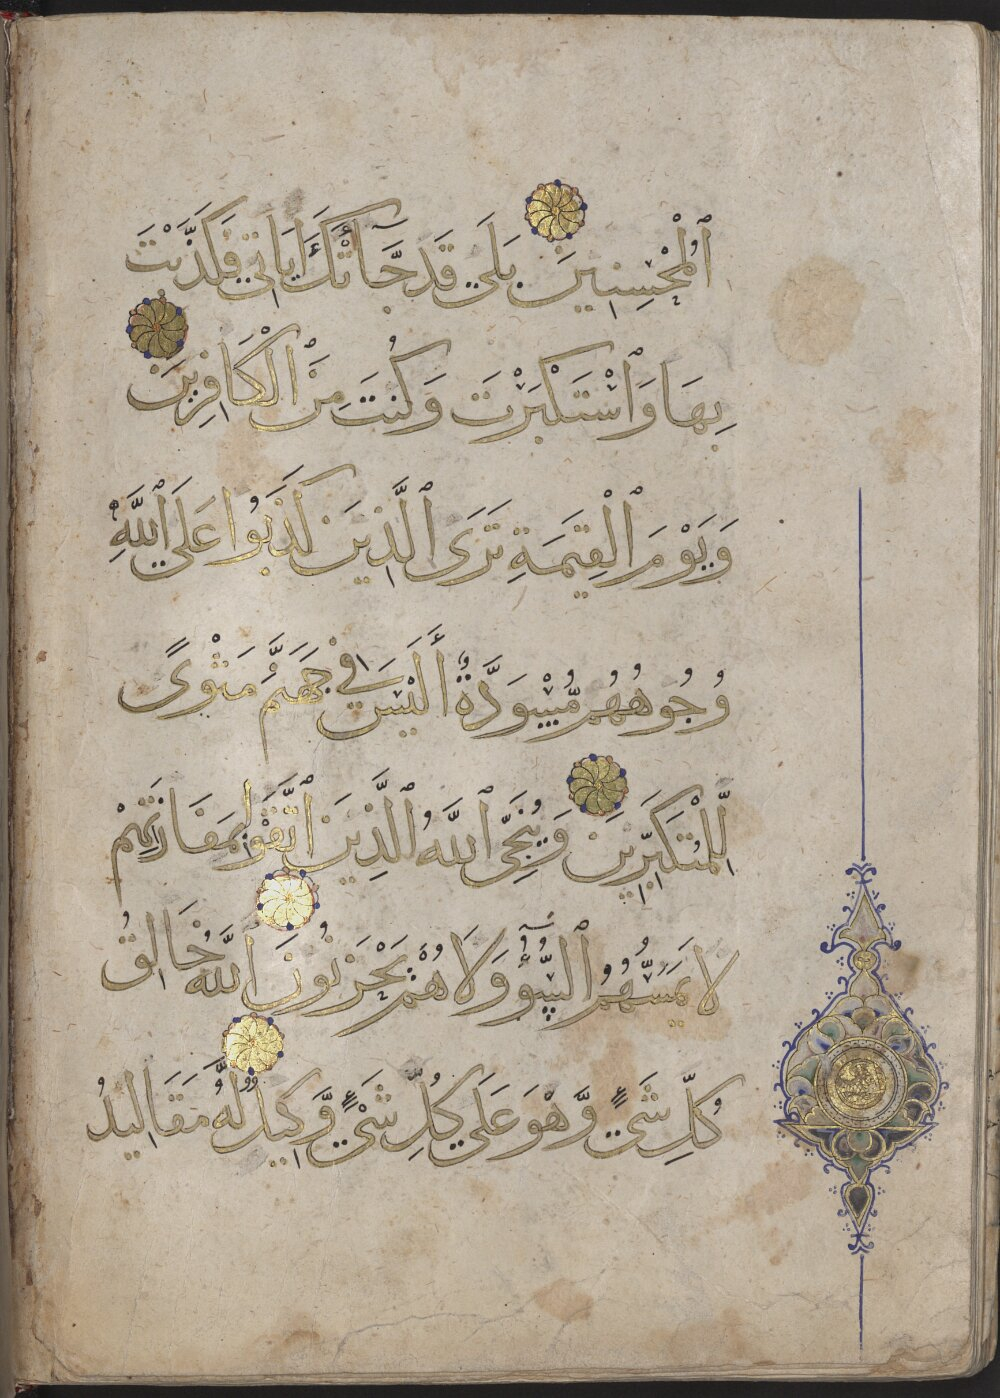 ٱلْمُحْسِنِينَ بَلَى قَدْ جَآءَتْكَ أَيَاتِى فَكَذَّبْتَ
بِهَا وَٱسْتَكْبَرْتَ وَكُنْتَ مِنَ ٱلْكَافِرِينَ
وَيَوْمَ ٱلْقِيٰمَةِ تَرَى ٱلَّذِينَ كَذَبُوا عَلَى ٱللَّهِ
وُجُوهُهُمْ مُّسْوَدَّةٌ أَلَيْسَ فِى جَهَنَّمَ مَثْوًى
لِّلْمُتَكَبِّرِينَ وَيُنَجِّى ٱللَّهُ ٱلَّذِينَ ٱتَّقَوْا بِمَفَازَتِهِمْ
لَا يَمَسُّهُمُ ٱلسُّوٓءُ وَلَا هُمْ يَحْزَنُونَ ٱللَّهُ خَالِقُ
كُلِّ شَىْءٍ وَّهُوَ عَلَى كُلِّ شَىْءٍ وَّكِيلٌ لَّهُ مَقَالِيدُ